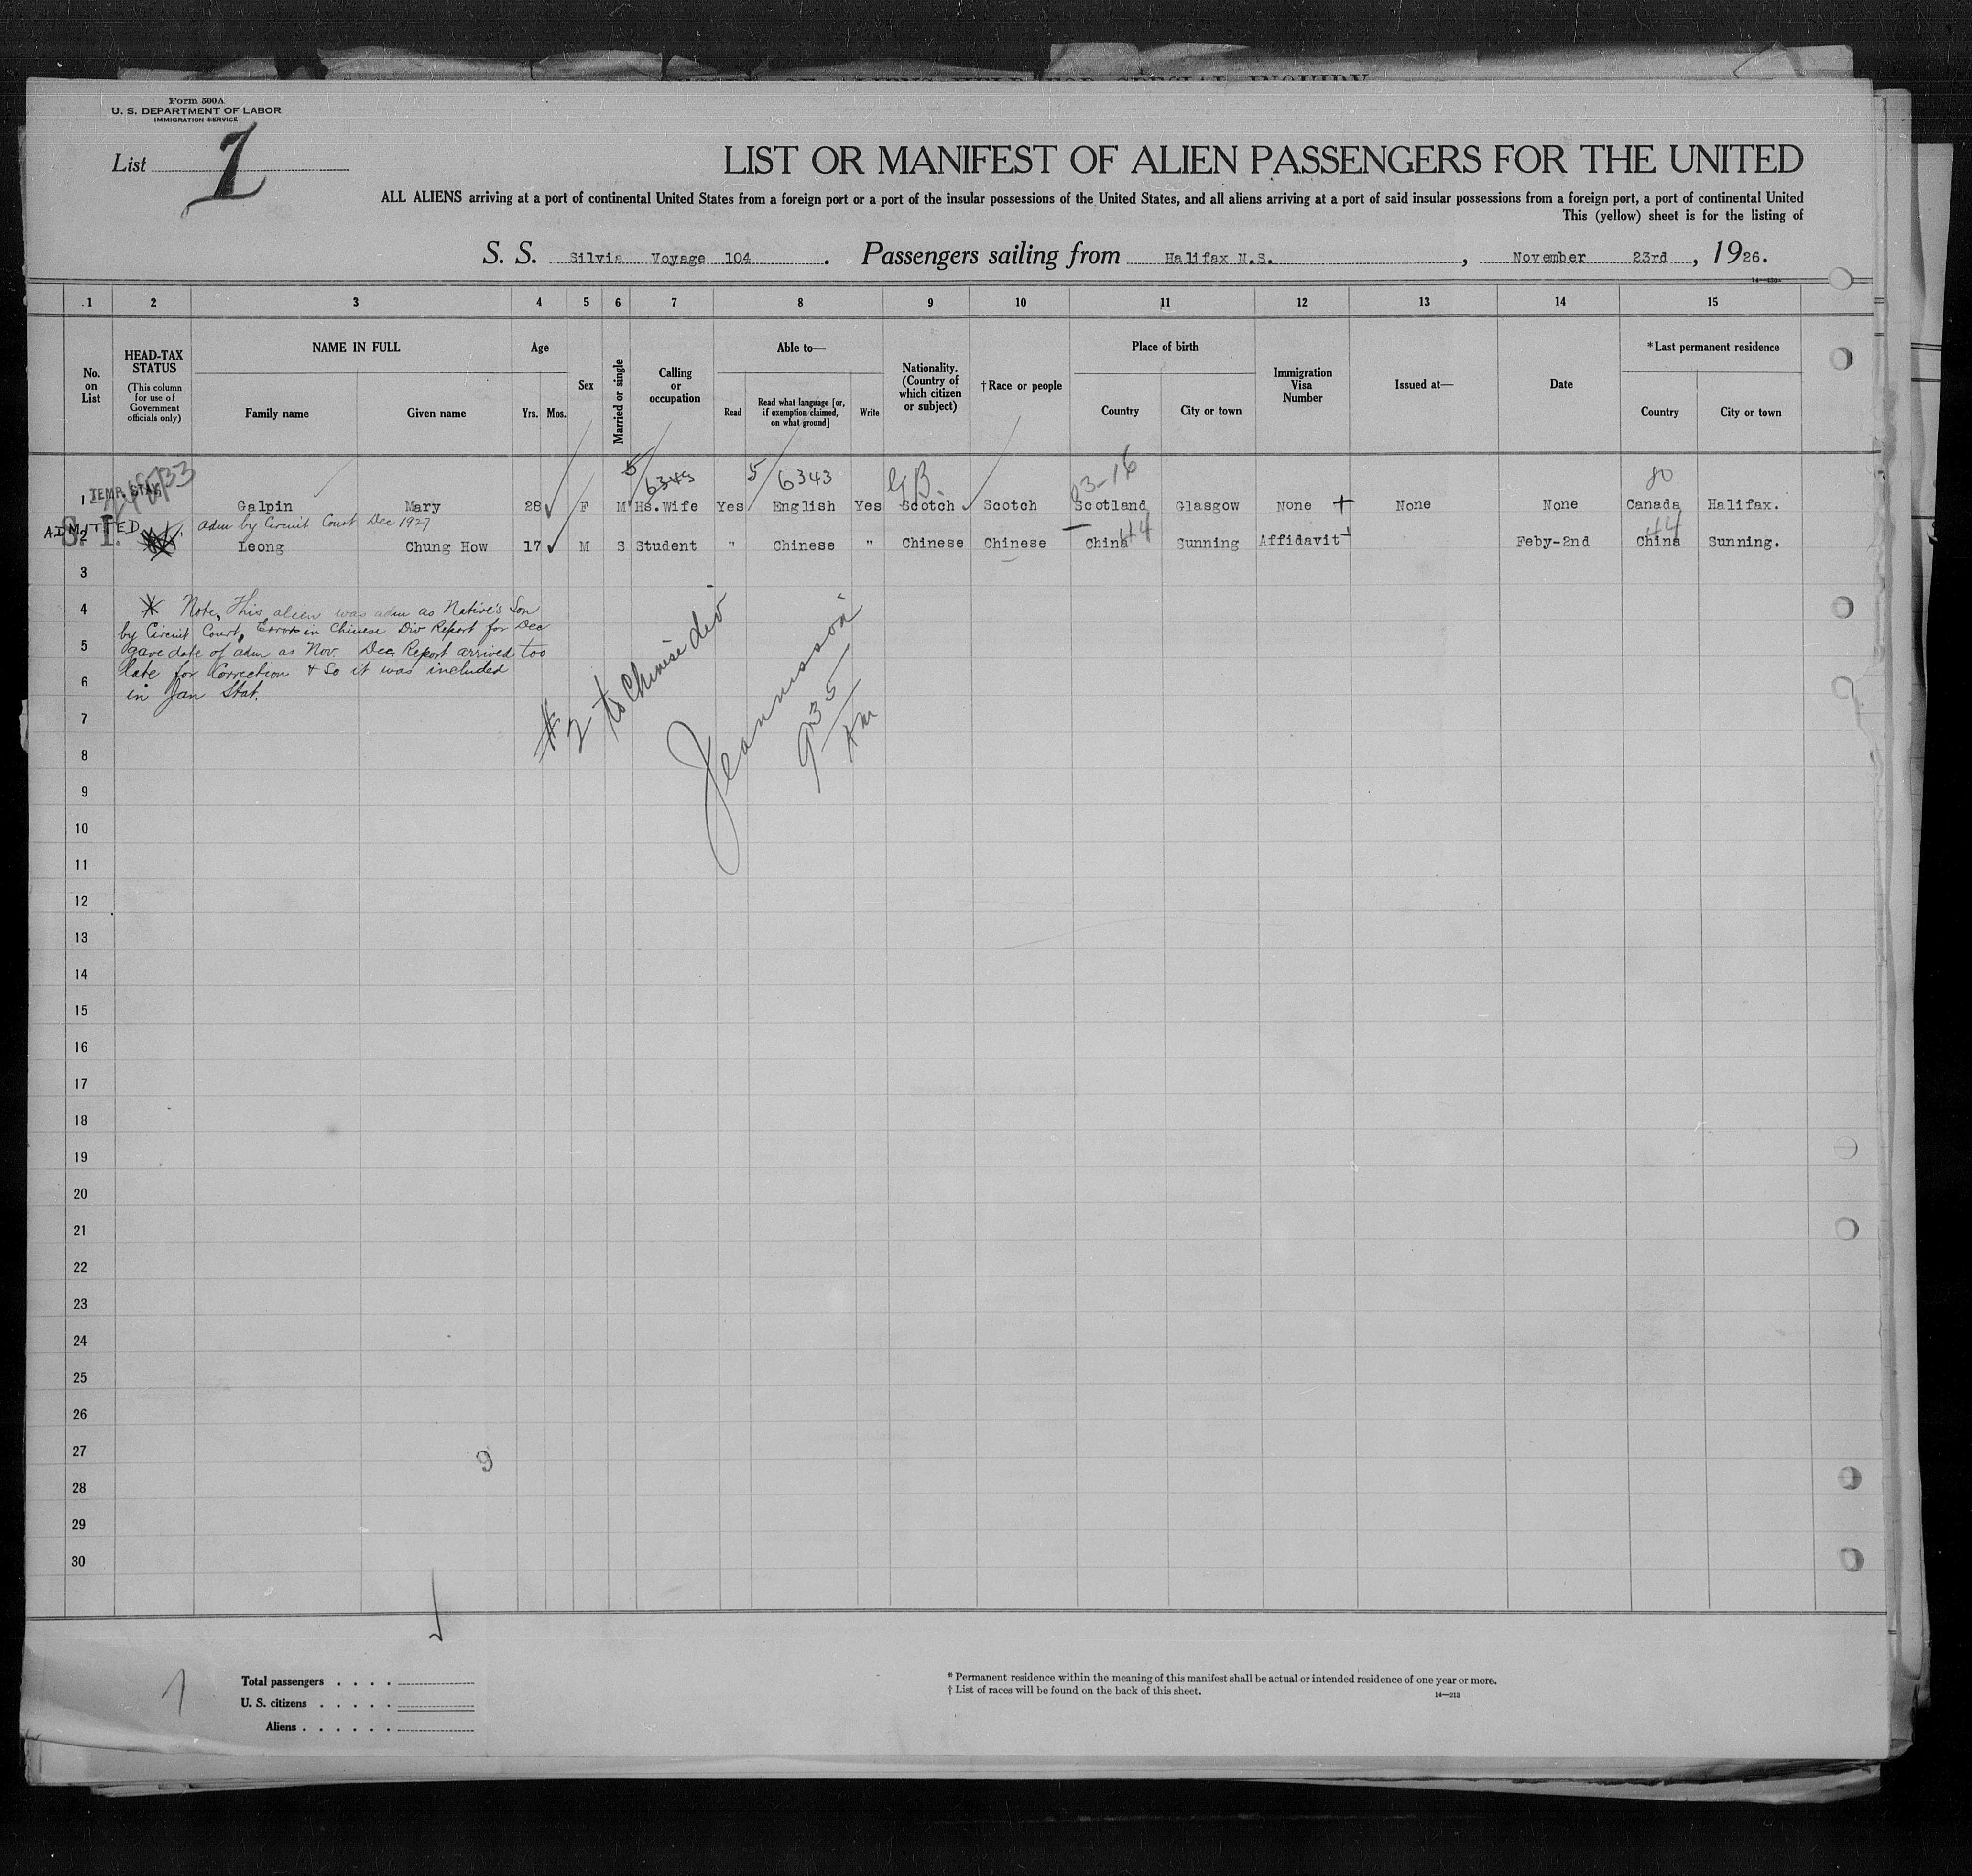 Form 500A
U. S. DEPARTMENT OF LABOR
IMMIGRATION SERVICE
List 1
LIST OR MANIFEST OF ALIEN PASSENGERS FOR THE UNITED
ALL ALIENS arriving at a port of continental United States from a foreign port or a port of the insular possessions of the United States, and all aliens arriving at a port of said insular possessions from a foreign port, a port of continental United
This (yellow) sheet is for the listing of
S. S. Silvia Voyage 104 . Passengers sailing from Halifax N.S. , November 23rd , 1926.
1 2 3 4 5 6 7 8 9 10 11 12 13 14 15
No. on List
HEAD-TAX STATUS
(This column for use of Government officials only)
NAME IN FULL
Family name Given name
Age
Yrs. Mos.
Sex
Married or single
Calling or occupation
Able to—
Read
Read what language [or, if exemption claimed, on what ground]
Write
Nationality. (Country of which citizen or subject)
†Race or people
Place of birth
Country City or town
Immigration Visa Number
Issued at—
Date
*Last permanent residence
Country City or town
5/6343 5/6343 G.B. 03-16 80
1 TEMP. STAY Galpin Mary 28 F M Hs.Wife Yes English Yes Scotch Scotch Scotland Glasgow None None None Canada Halifax.
ADMITTED adm by Circuit Court Dec 1927
S. I.
2 Leong Chung How 17 M S Student " Chinese " Chinese Chinese China 44 Sunning Affidavit Feby-2nd China 44 Sunning.
3
4 Note, This alien was adm as Native's Son
by Circuit Court, Error in Chinese Div Report for Dec
5 gave date of adm as Nov. Dec. Report arrived too
late for Correction & So it was included
6 in Jan Stat.
#2 to Chinese div
935
AM
7
8
9
10
11
12
13
14
15
16
17
18
19
20
21
22
23
24
25
26
27
9
28
29
30
Total passengers . . . .
U. S. citizens . . . . .
Aliens . . . . . .
* Permanent residence within the meaning of this manifest shall be actual or intended residence of one year or more.
† List of races will be found on the back of this sheet.
14—213